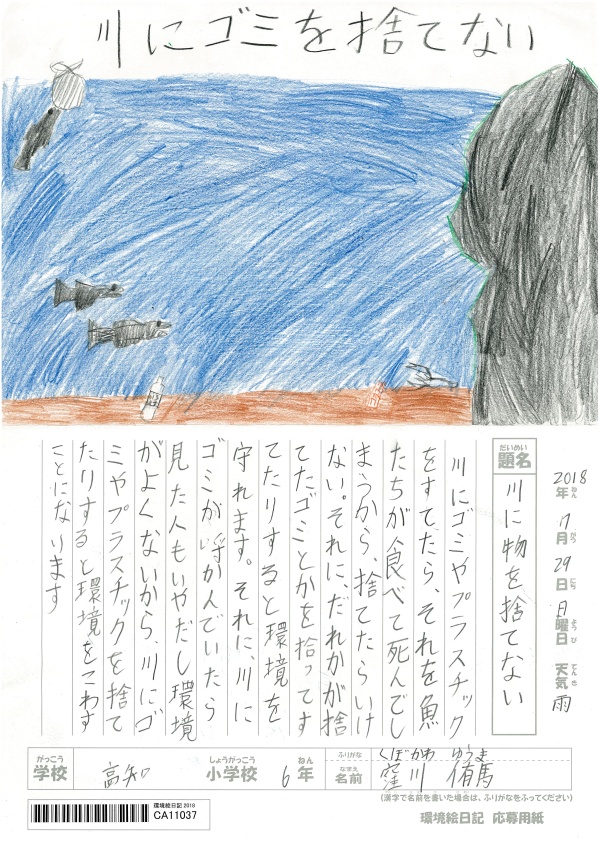 川にゴミを捨てない
2018年ねん 7月がつ 29日にち 日曜日ようび 天気てんき 雨
だいめい
題名
川に物を捨てない
川にゴミやプラスチック
をすてたら、それを魚
たちが食べて死んでし
まうから、捨てたらいけ
ない。それに、だれかが捨
てたゴミとかを拾ってす
てたりすると環境を
守れます。それに、川に
ゴミが浮かんでいたら
見た人もいやだし環境
がよくないから、川にゴ
ミやプラスチックを捨て
たりすると環境をこわす
ことになります
がっこう
学校
高知
しょうがっこう
小学校
6
ねん
年
ふりがな
くぼかわ ゆうま
なまえ
名前
窪川 侑馬
(漢字で名前を書いた場合は、ふりがなをふってください)
環境絵日記 2018
CA11037
環境絵日記 応募用紙